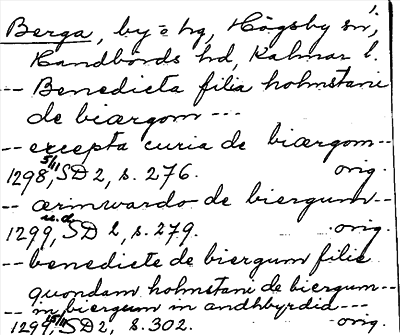 Berga, by = hg, Högsby sn,
Handbörds hd, Kalmar l.
-- Benedicta filia holmstani
de biærgom ---
-- excepta curia de biærgom--
1298 5/11, SD 2, s. 276. orig.
-- ærinwardo de biergum--
1299 u.d., SD 2, s. 279. orig.
-- benedicte de biergum filie
quondam holmstani de biergum--
-- in biergum in andhbyrdia ---
1299, SD 2, s. 302. orig.